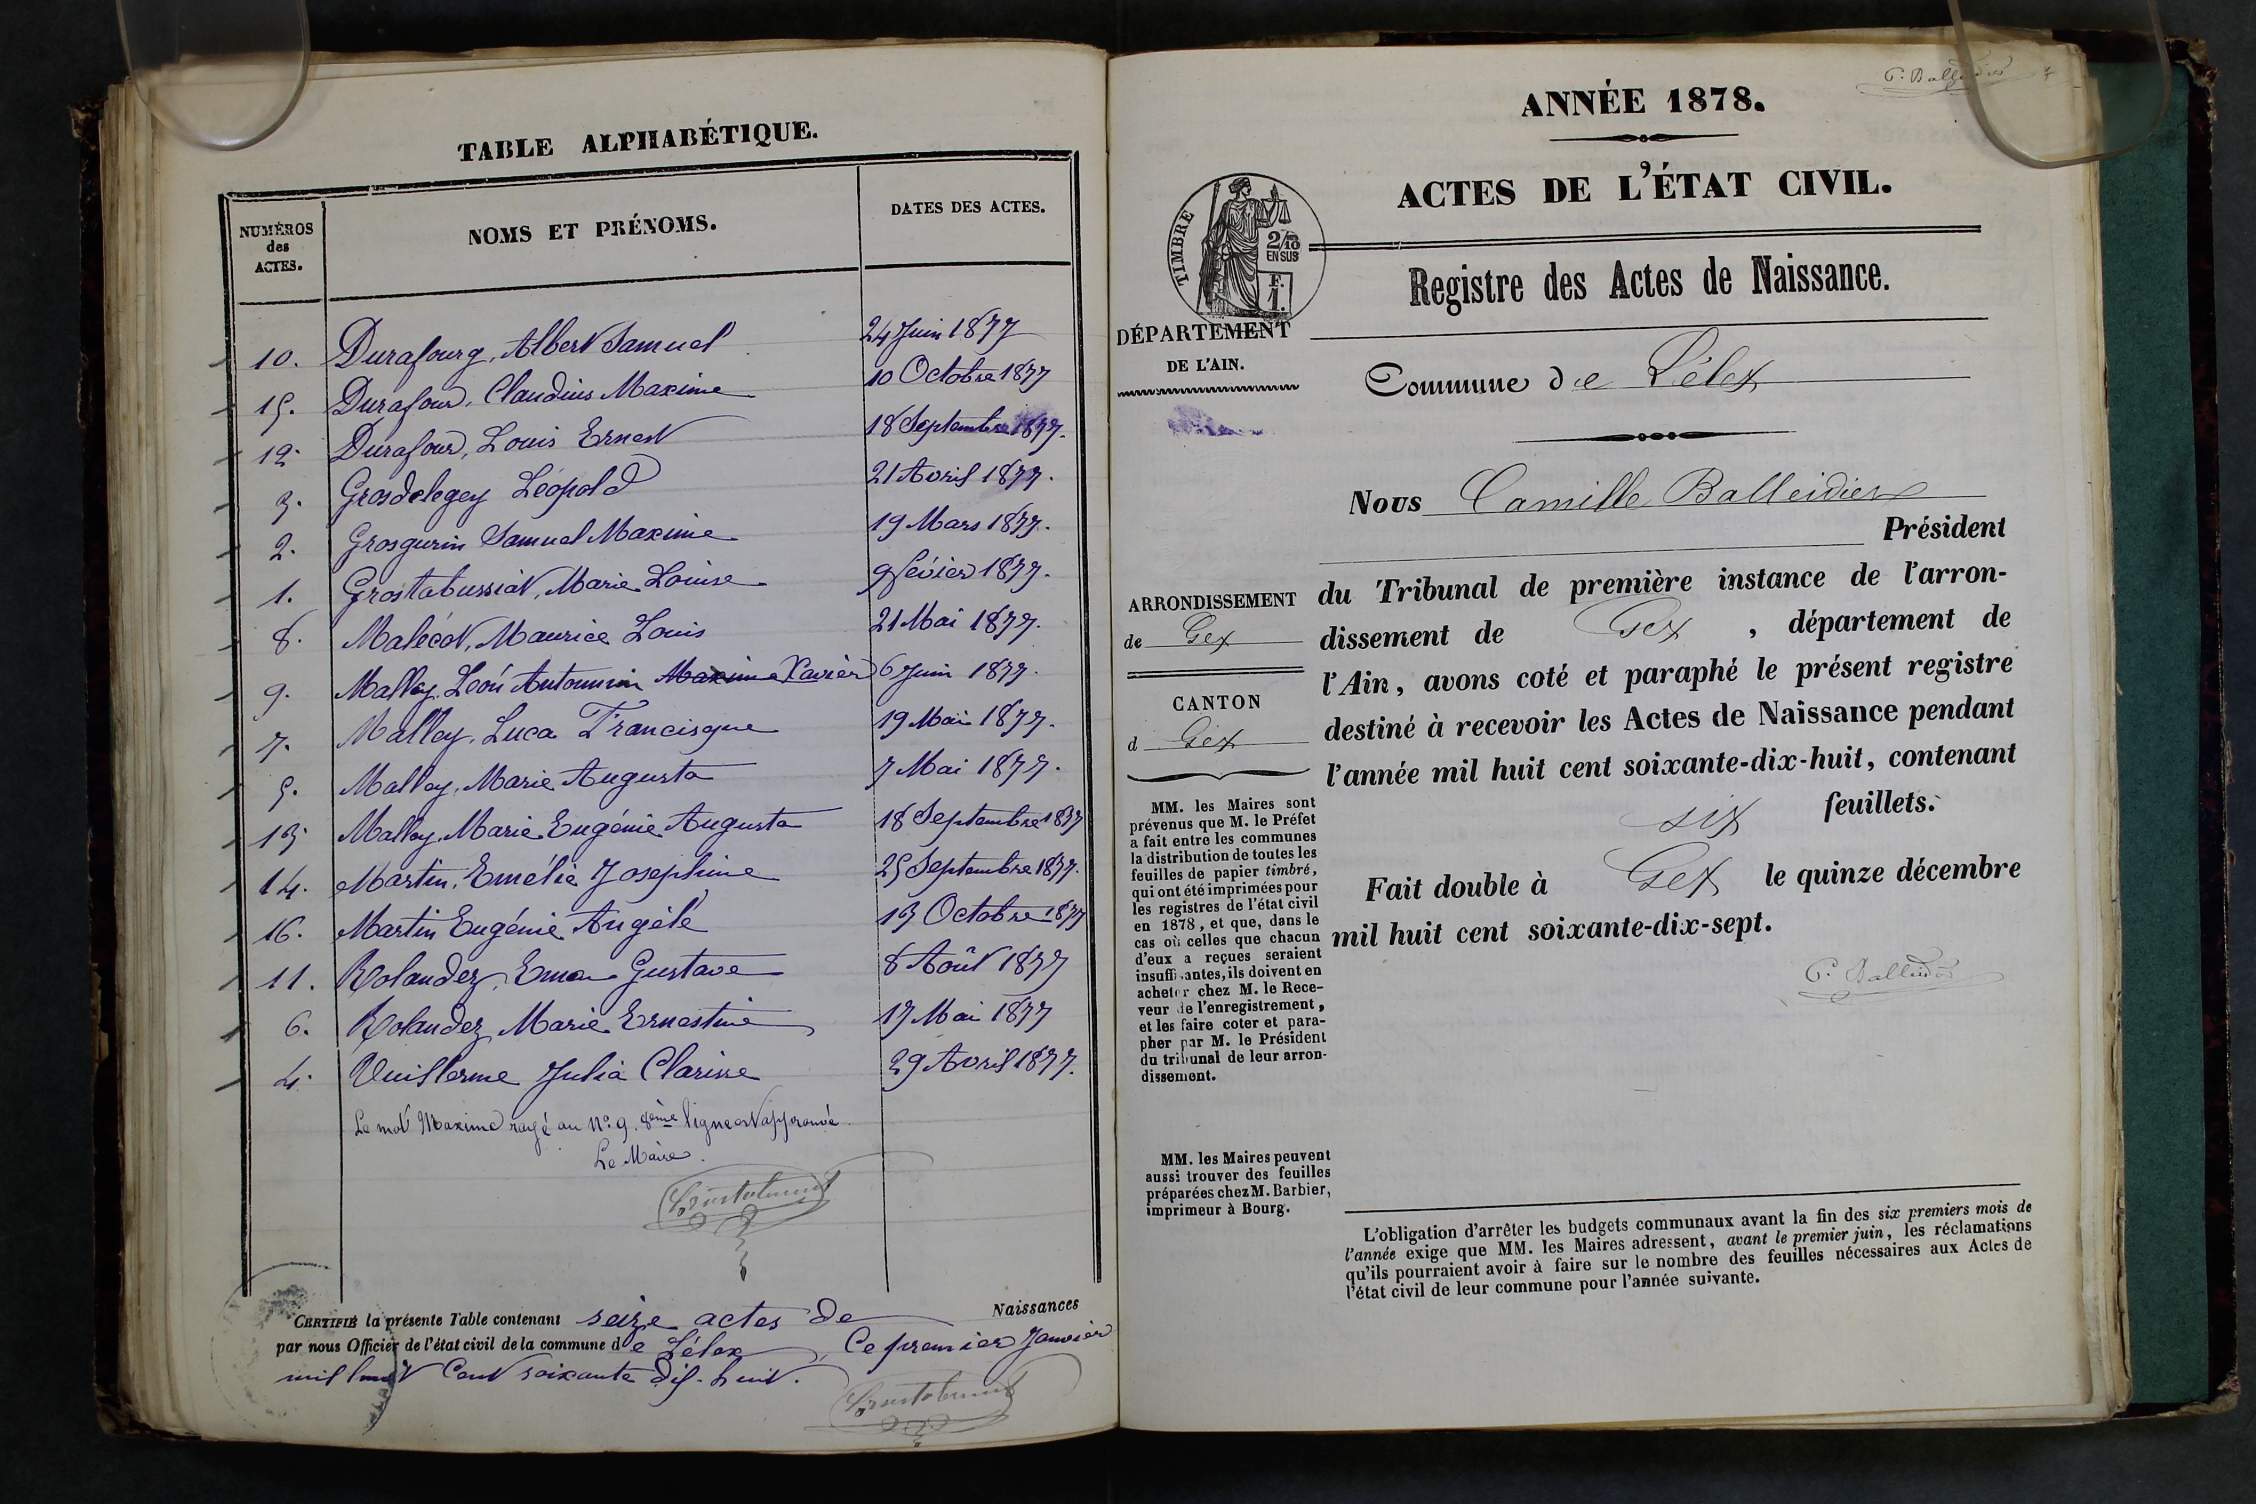 TABLE ALPHABÉTIQUE.
NUMÉROS des ACTES.
NOMS ET PRÉNOMS.
DATES DES ACTES.
10. Durafourg, Albert Samuel 24 Juin 1877
15. Durafour, Claudius Maxime 10 Octobre 1877
12. Durafour, Louis Ernest 18 Septembre 1877.
3. Grosdelegey Léopold 21 Avril 1877.
2. Grosgurin Samuel Maxime 19 Mars 1877.
1. Grostabussiat, Marie Louise 9 févier 1877.
8. Malécot, Maurice Louis 21 Mai 1877.
9. Malley, Léon Antonnin Maxime Xavier 6 Juin 1877.
7. Malley, Luca Francisque 19 Mai 1877.
5. Malley, Marie Augusta 7 Mai 1877.
13. Malley, Marie Eugénie Augusta 18 Septembre 1877
14. Martin, Emélie Joséphine 25 Septembre 1877.
16. Martin Eugénie Angèle 13 Octobre 1877
11. Rolandez, Gustave 8 Août 1877
6. Rolandez, Marie Ernestine 17 Mai 1877
4. Vuillerme Julia Clarisse 29 Avril 1877.
Le mot Maxime rayé au N° 9. 8ème ligne est approuvé.
Le Maire.
CERTIFIÉ la présente Table contenant seize actes de Naissances
par nous Officier de l'état civil de la commune de Lélex, Ce premier Janvier
mil huit Cent soixante dix-huit.
C. Balleidier
ANNÉE 1878.
ACTES DE L'ÉTAT CIVIL.
TIMBRE
2/10
EN SUS
F.
1.
Registre des Actes de Naissance.
DÉPARTEMENT
DE L'AIN.
Commune de Lélex
Nous Camille Balleidier
Président
du Tribunal de première instance de l'arron-
dissement de Gex, département de
l'Ain, avons coté et paraphé le présent registre
destiné à recevoir les Actes de Naissance pendant
l'année mil huit cent soixante-dix-huit, contenant
six feuillets.
Fait double à Gex le quinze décembre
mil huit cent soixante-dix-sept.
C. Balleidier
ARRONDISSEMENT
de Gex
CANTON
d Gex
MM. les Maires sont
prévenus que M. le Préfet
a fait entre les communes
la distribution de toutes les
feuilles de papier timbré,
qui ont été imprimées pour
les registres de l'état civil
en 1878, et que, dans le
cas où celles que chacun
d'eux a reçues seraient
insuffisantes, ils doivent en
acheter chez M. le Rece-
veur de l'enregistrement,
et les faire coter et para-
pher par M. le Président
du tribunal de leur arron-
dissement.
MM. les Maires peuvent
aussi trouver des feuilles
préparées chez M. Barbier,
imprimeur à Bourg.
L'obligation d'arrêter les budgets communaux avant la fin des six premiers mois de
l'année exige que MM. les Maires adressent, avant le premier juin, les réclamations
qu'ils pourraient avoir à faire sur le nombre des feuilles nécessaires aux Actes de
l'état civil de leur commune pour l'année suivante.